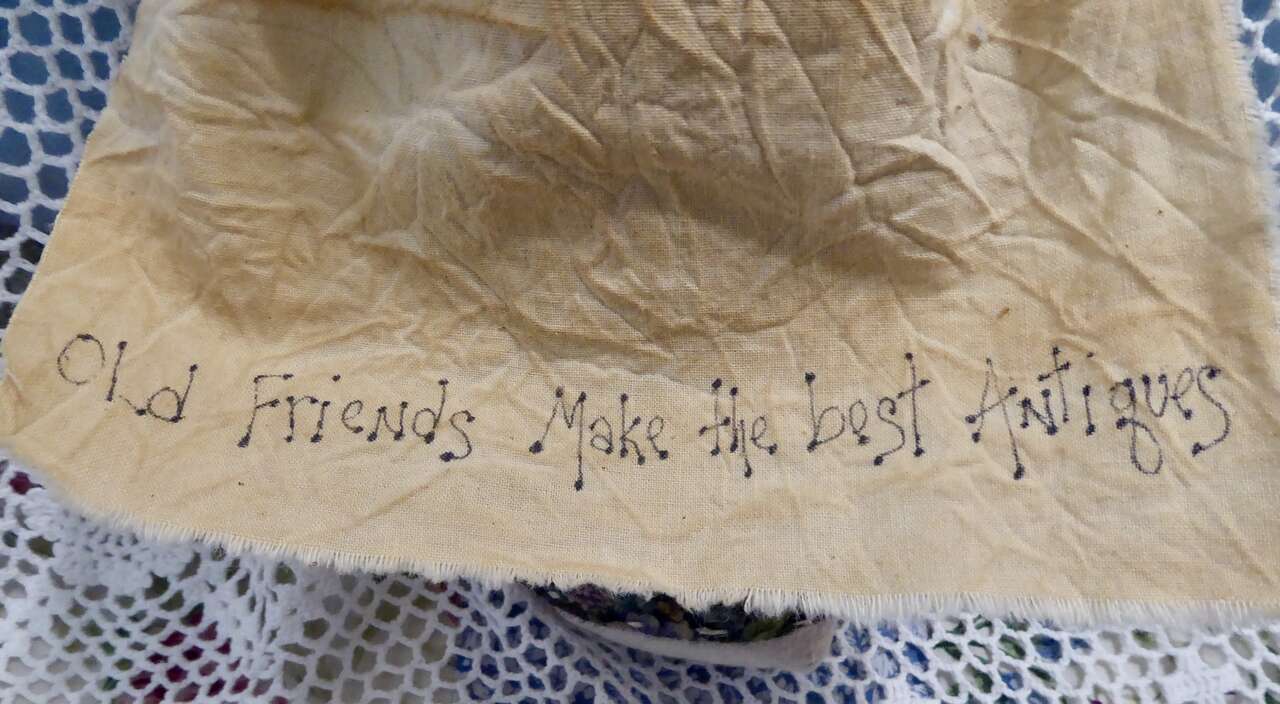 Old Friends Make the best Antiques